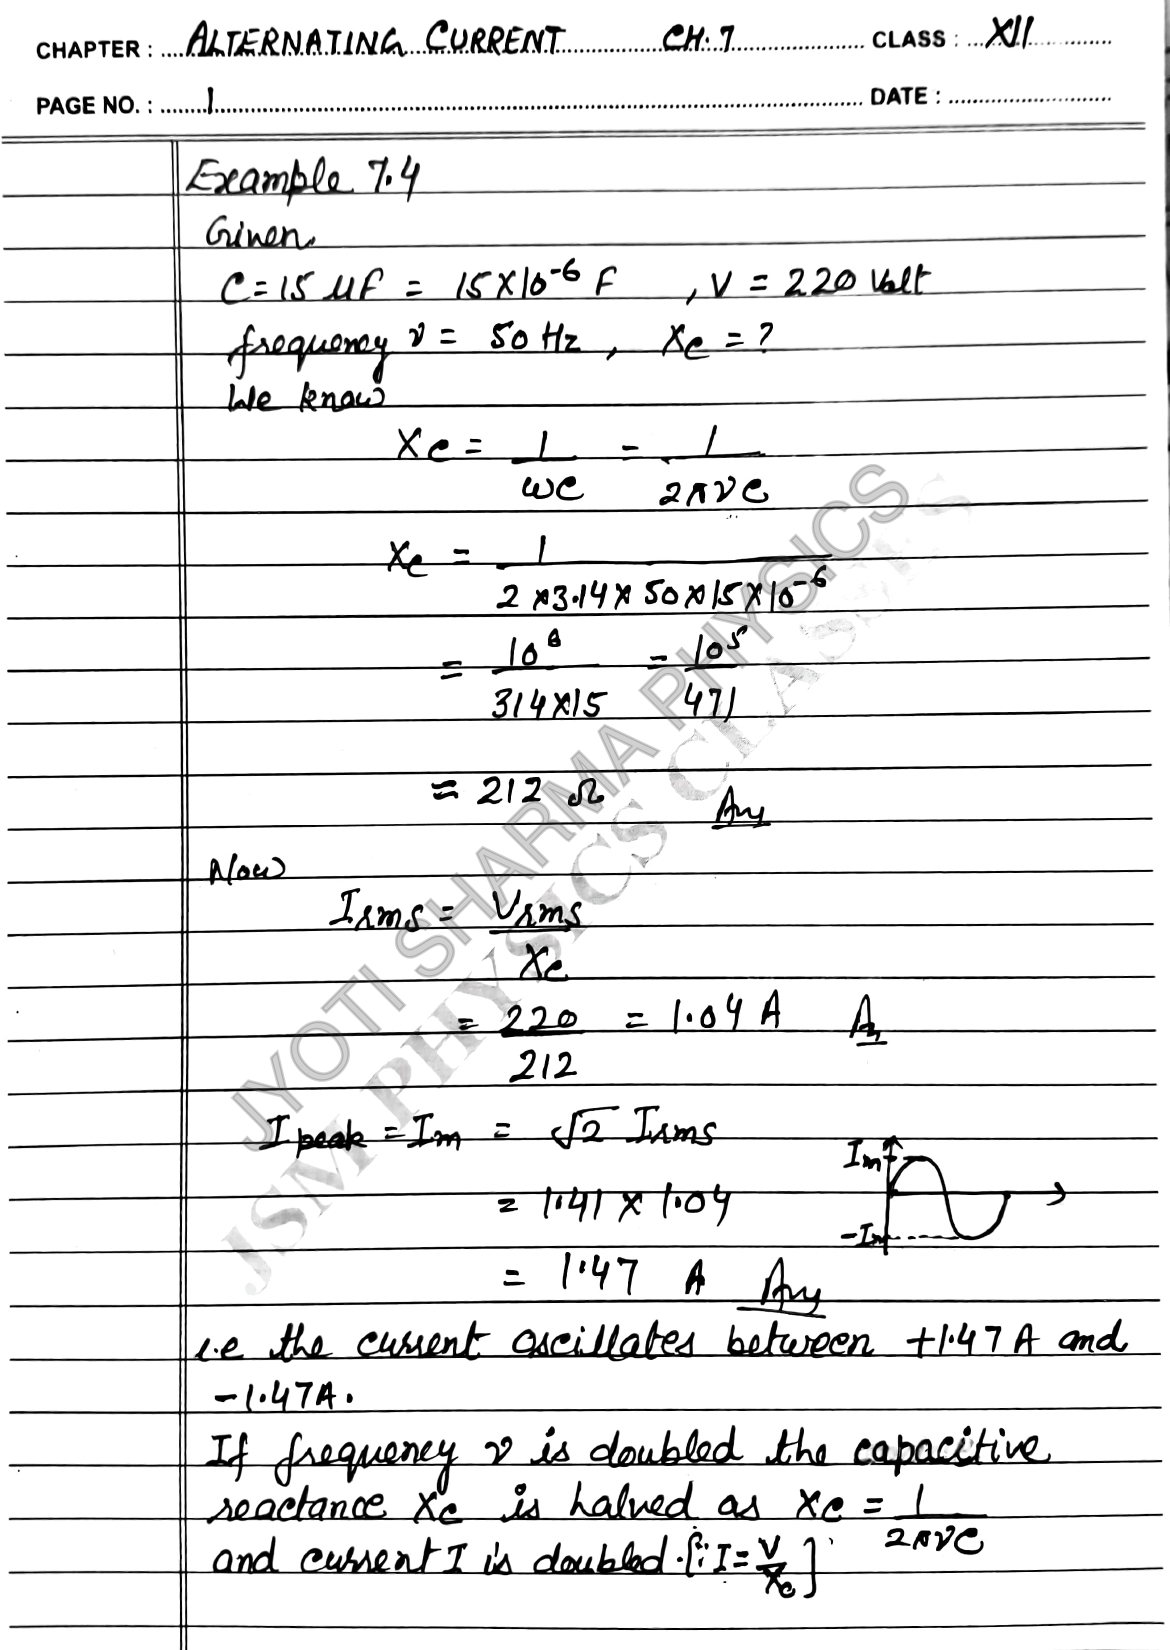 CHAPTER : ALTERNATING CURRENT CH.7 CLASS : XII
PAGE NO. : 1 DATE :
Example 7.4
Given
C = 15 μF = 15×10⁻⁶ F , V = 220 Volt
frequency ν = 50 Hz , Xc = ?
We know
Xc = 1/ωC = 1/2πνC
Xc = 1/2×3.14×50×15×10⁻⁶
= 10⁶/314×15 = 10⁵/471
≈ 212 Ω Ans
Now
Irms = Vrms/Xc
= 220/212 = 1.04 A Ans
I peak = Im = √2 Irms
= 1.41 × 1.04
= 1.47 A Ans
Im
-Im
i.e the current oscillates between +1.47A and
-1.47A.
If frequency ν is doubled the capacitive
reactance Xc is halved as Xc = 1/2πνC
and current I is doubled. [∵ I = V/Xc]
JYOTI SHARMA PHYSICS
JSM PHYSICS CLASSES